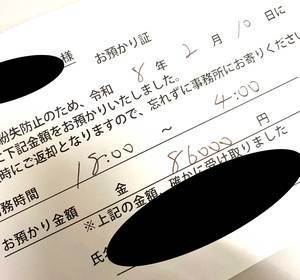 様　お預かり証
紛失防止のため、令和 8 年 2 月 10 日に
下記金額をお預かりいたしました。
時にご返却となりますので、忘れずに事務所にお寄りくださ
務時間 18:00 ～ 4:00
お預かり金額 金 86000 円
※上記の金額、確かに受け取りました
氏名